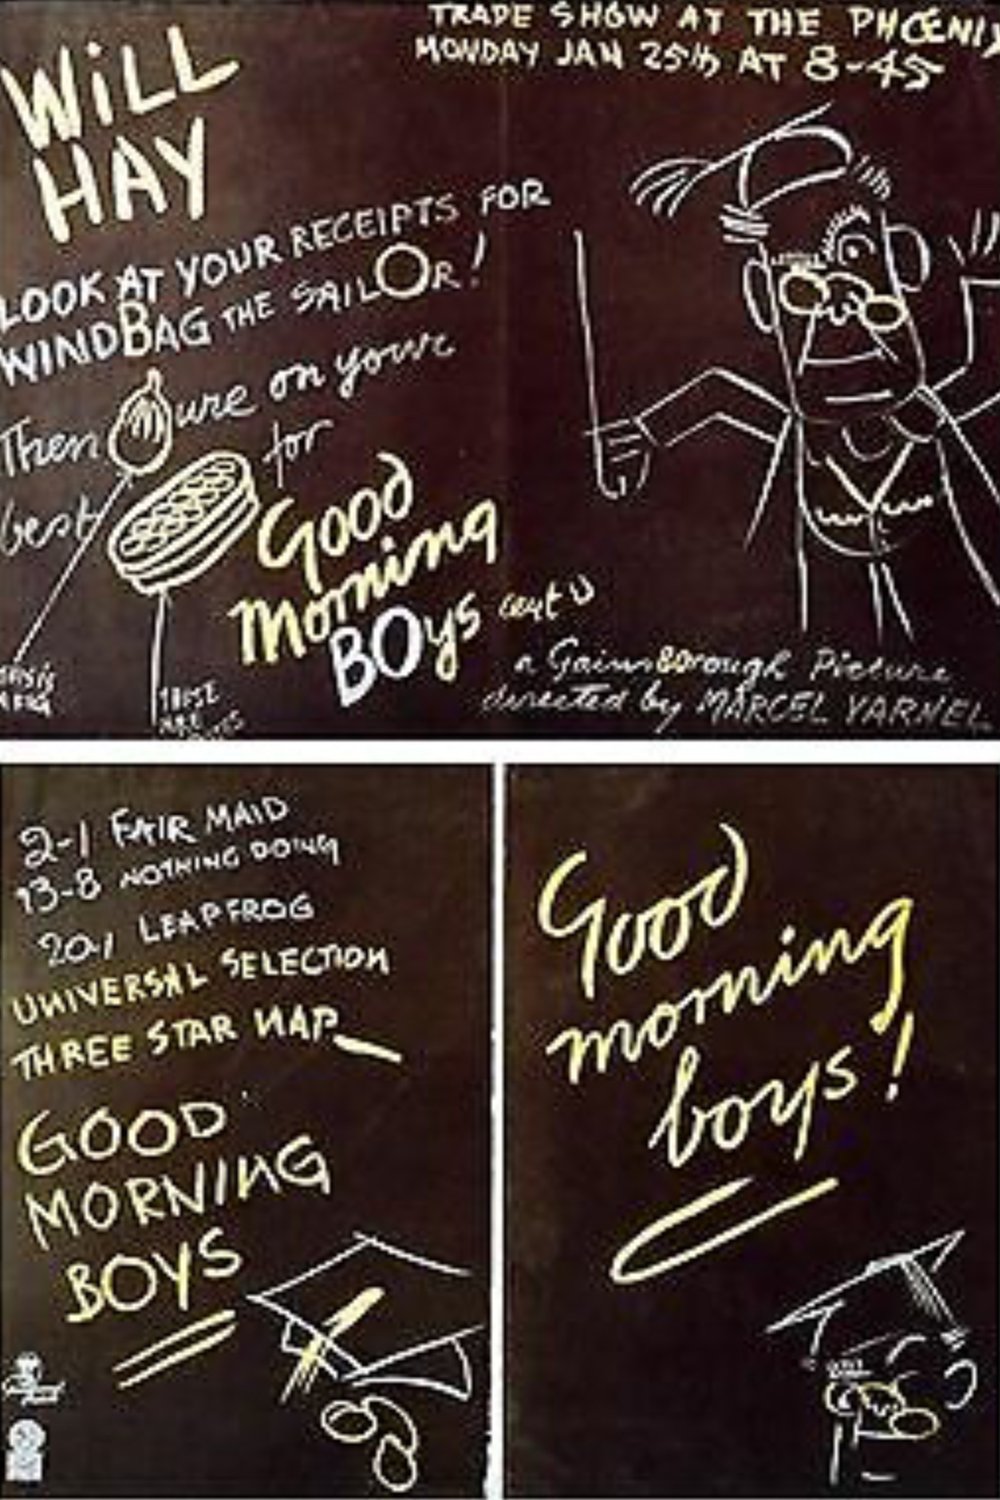 TRADE SHOW AT THE PHOENIX
MONDAY JAN 25th AT 8-45
WILL
HAY
LOOK AT YOUR RECEIPTS FOR
WINDBAG THE SAILOR!
Then ure on your
best for
Good
Morning
BOys cert U
a GainsBOrough Picture
directed by MARCEL VARNEL
THIS IS
A FIG
THESE
ARE
2-1 FAIR MAID
13-8 NOTHING DOING
20-1 LEAPFROG
UNIVERSAL SELECTION
THREE STAR NAP
GOOD
MORNING
BOYS
Good
morning
boys!